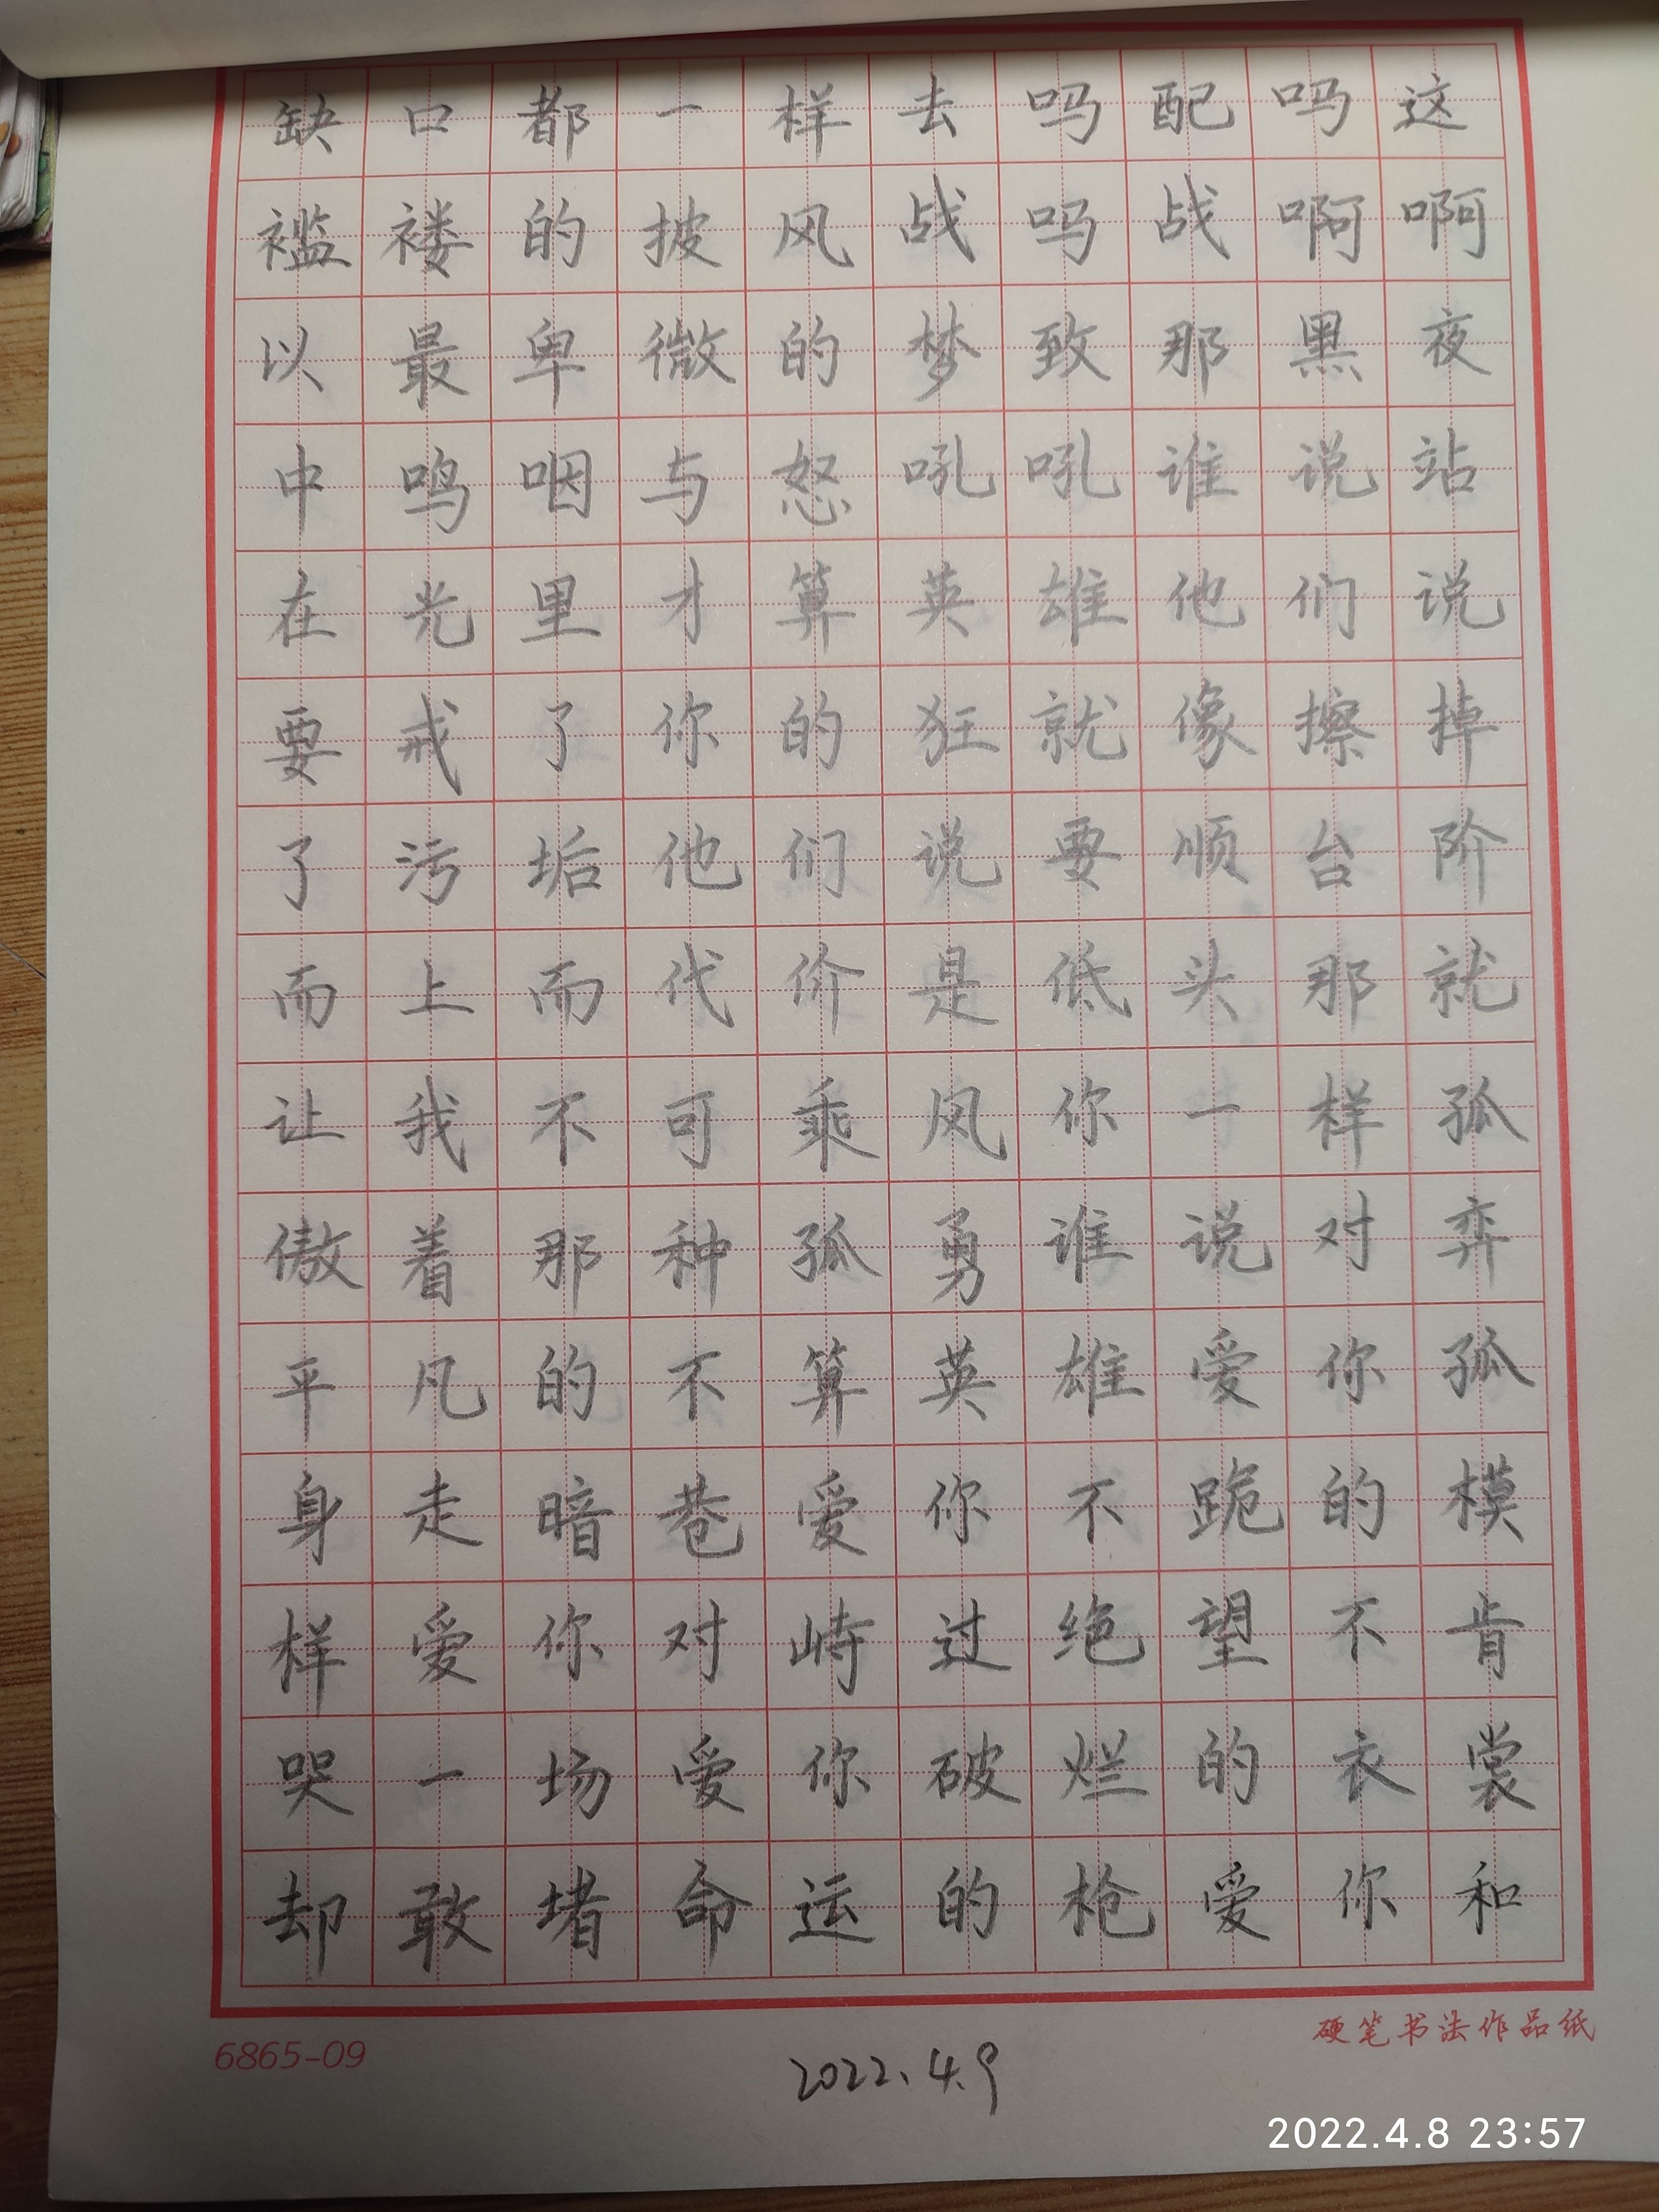 缺口都一样去吗配吗这
褴褛的披风战吗战啊啊
以最卑微的梦致那黑夜
中鸣咽与怒吼吼谁说站
在光里才算英雄他们说
要戒了你的狂就像擦掉
了污垢他们说要顺台阶
而上而代价是低头那就
让我不可乘风你一样孤
傲着那种孤勇谁说对弈
平凡的不算英雄爱你孤
身走暗巷爱你不跪的模
样爱你对峙过绝望不肯
哭一场爱你破烂的衣裳
却敢堵命运的枪爱你和
6865-09
硬笔书法作品纸
2022.4.9
2022.4.8 23:57